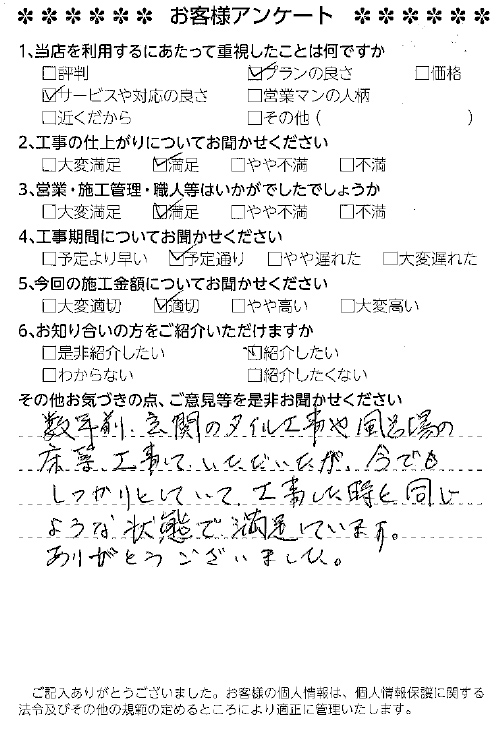 ✽✽✽✽✽✽ お客様アンケート ✽✽✽✽✽✽
1、当店を利用するにあたって重視したことは何ですか
□評判 ☑プランの良さ □価格
☑サービスや対応の良さ □営業マンの人柄
□近くだから □その他 ( )
2、工事の仕上がりについてお聞かせください
□大変満足 ☑満足 □やや不満 □不満
3、営業・施工管理・職人等はいかがでしたでしょうか
□大変満足 ☑満足 □やや不満 □不満
4、工事期間についてお聞かせください
□予定より早い ☑予定通り □やや遅れた □大変遅れた
5、今回の施工金額についてお聞かせください
□大変適切 ☑適切 □やや高い □大変高い
6、お知り合いの方をご紹介いただけますか
□是非紹介したい ☑紹介したい
□わからない □紹介したくない
その他お気づきの点、ご意見等を是非お聞かせください
数年前、玄関のタイル工事や風呂場の
床 工事していただいたが、今でも
しっかりとしていて、工事した時と同じ
ような状態で満足しています。
ありがとうございました。
ご記入ありがとうございました。お客様の個人情報は、個人情報保護に関する
法令及びその他の規範の定めるところにより適正に管理いたします。